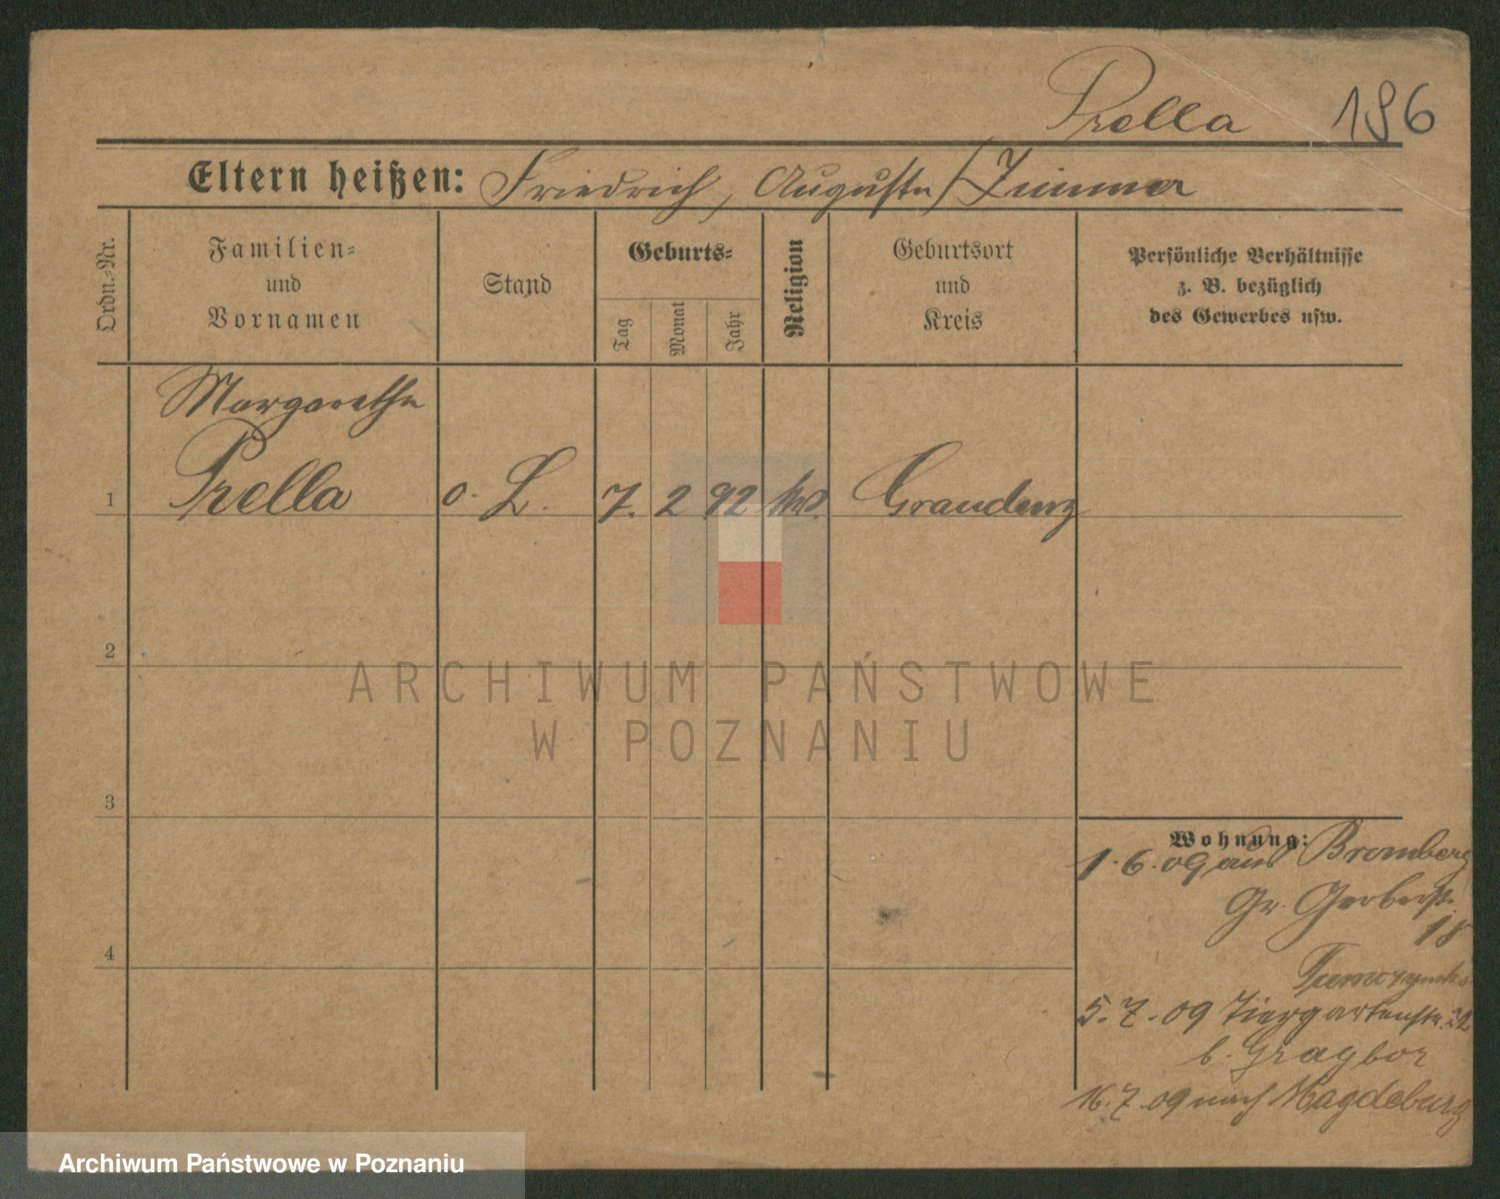 Prella 196
Eltern heißen: Friedrich, Auguste / Zimmer
Ordn.-Nr.
Familien-
und
Vornamen
Stand
Geburts-
Tag
Monat
Jahr
Religion
Geburtsort
und
Kreis
Persönliche Verhältnisse
z. B. bezüglich
des Gewerbes usw.
Margarethe
1 Prella o. L. 7. 2 92 Graudenz
2
ARCHIWUM PAŃSTWOWE
W POZNANIU
3
Wohnung:
1.6.09 aus Bromberg
Gr. Gerberstr.
18
5.7.09 Tiergartenstr. 32
b. Gragbor
16.7.09 nach Magdeburg
4
Archiwum Państwowe w Poznaniu